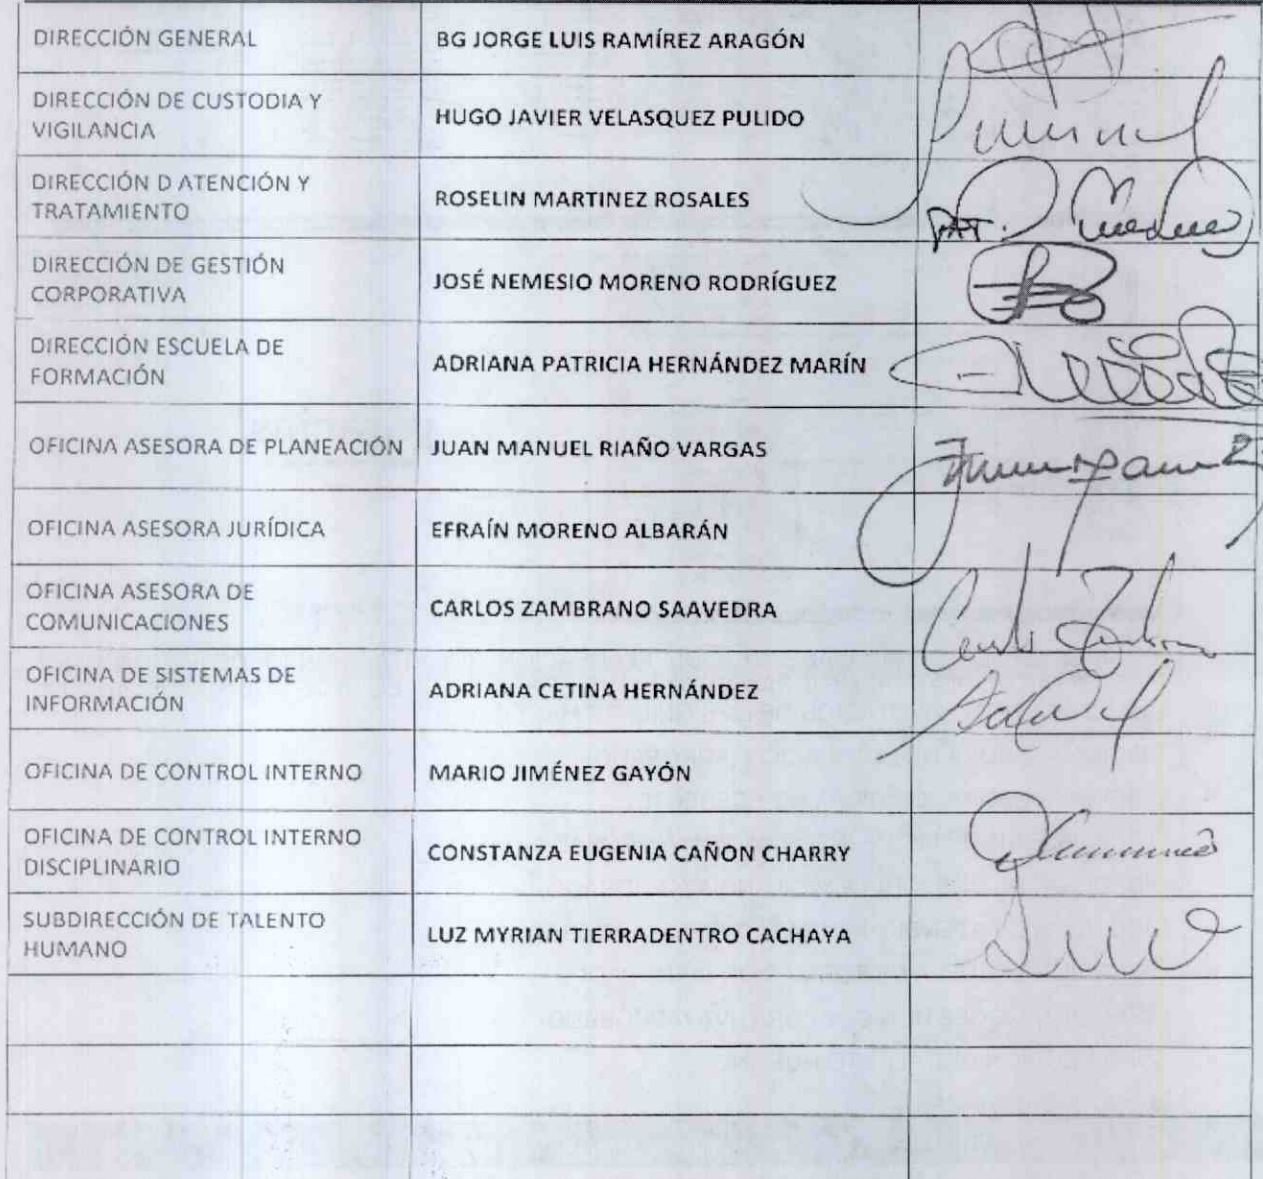 DIRECCIÓN GENERAL
BG JORGE LUIS RAMÍREZ ARAGÓN
DIRECCIÓN DE CUSTODIA Y
VIGILANCIA
HUGO JAVIER VELASQUEZ PULIDO
DIRECCIÓN D ATENCIÓN Y
TRATAMIENTO
ROSELIN MARTINEZ ROSALES
DIRECCIÓN DE GESTIÓN
CORPORATIVA
JOSÉ NEMESIO MORENO RODRÍGUEZ
DIRECCIÓN ESCUELA DE
FORMACIÓN
ADRIANA PATRICIA HERNÁNDEZ MARÍN
OFICINA ASESORA DE PLANEACIÓN
JUAN MANUEL RIAÑO VARGAS
OFICINA ASESORA JURÍDICA
EFRAÍN MORENO ALBARÁN
OFICINA ASESORA DE
COMUNICACIONES
CARLOS ZAMBRANO SAAVEDRA
OFICINA DE SISTEMAS DE
INFORMACIÓN
ADRIANA CETINA HERNÁNDEZ
OFICINA DE CONTROL INTERNO
MARIO JIMÉNEZ GAYÓN
OFICINA DE CONTROL INTERNO
DISCIPLINARIO
CONSTANZA EUGENIA CAÑON CHARRY
SUBDIRECCIÓN DE TALENTO
HUMANO
LUZ MYRIAN TIERRADENTRO CACHAYA